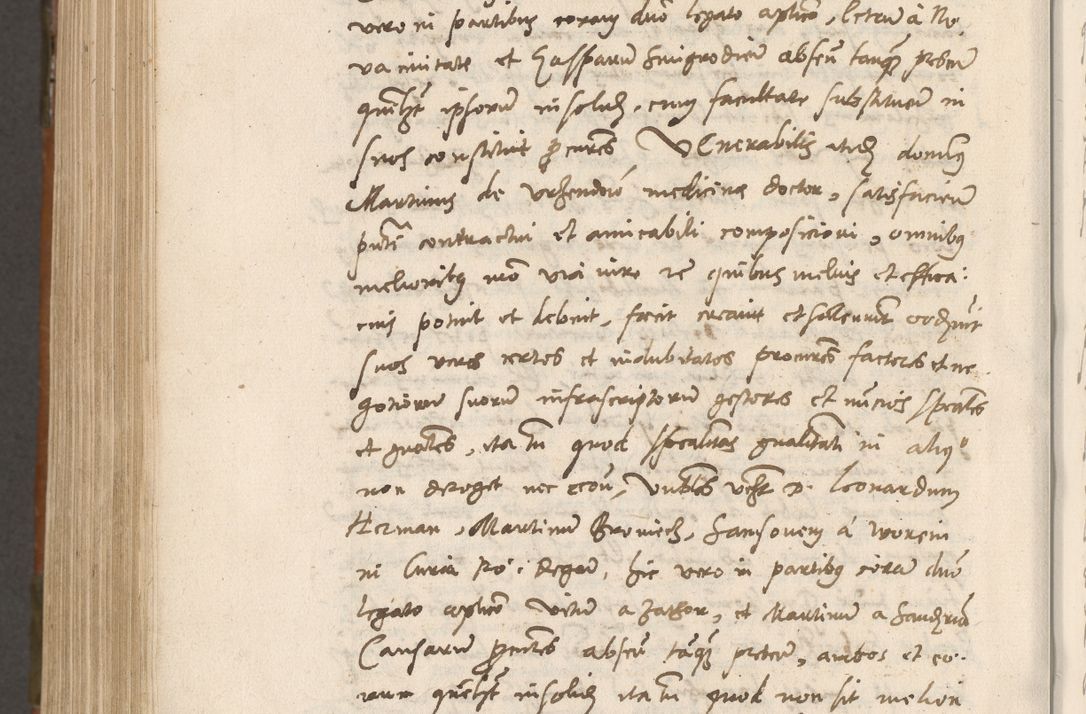 vero in partibus coram dno legato aplico, Petru à No-
va civitate et Gasparum Smigrodium absen tanq preter
quelibet ipsorum in solid, cum facultate substituen in
suos constituit procures Venerabilis atq dominus
Martinus de Urzendow medicine doctor, satisfaciem
contractui et amicabili composicioni, omnibus
melioribus modo via iure re quibus melius et effica:
cius potuit et debuit, fecit creavit et solennit ordinavit
suos veros certos et indubitatos procures factores et ne-
gotiorum suorum infrascriptorum gestores et nuncios speales
et gnales, ita tn quod spealitas gnalitati in aliquo
non deroget nec econ, Unbles D. Leonardum
Herman, Martinum Bronieck, Sansovem à Worein
in Curia Ro: degen, hic vero in partibus coram dno
legato aplico Vitum a Zathor, et Martinum a
Causarum procures absen tanq preter, ambos et eo-
rum quelibet in solid ita tn quod non sit melior